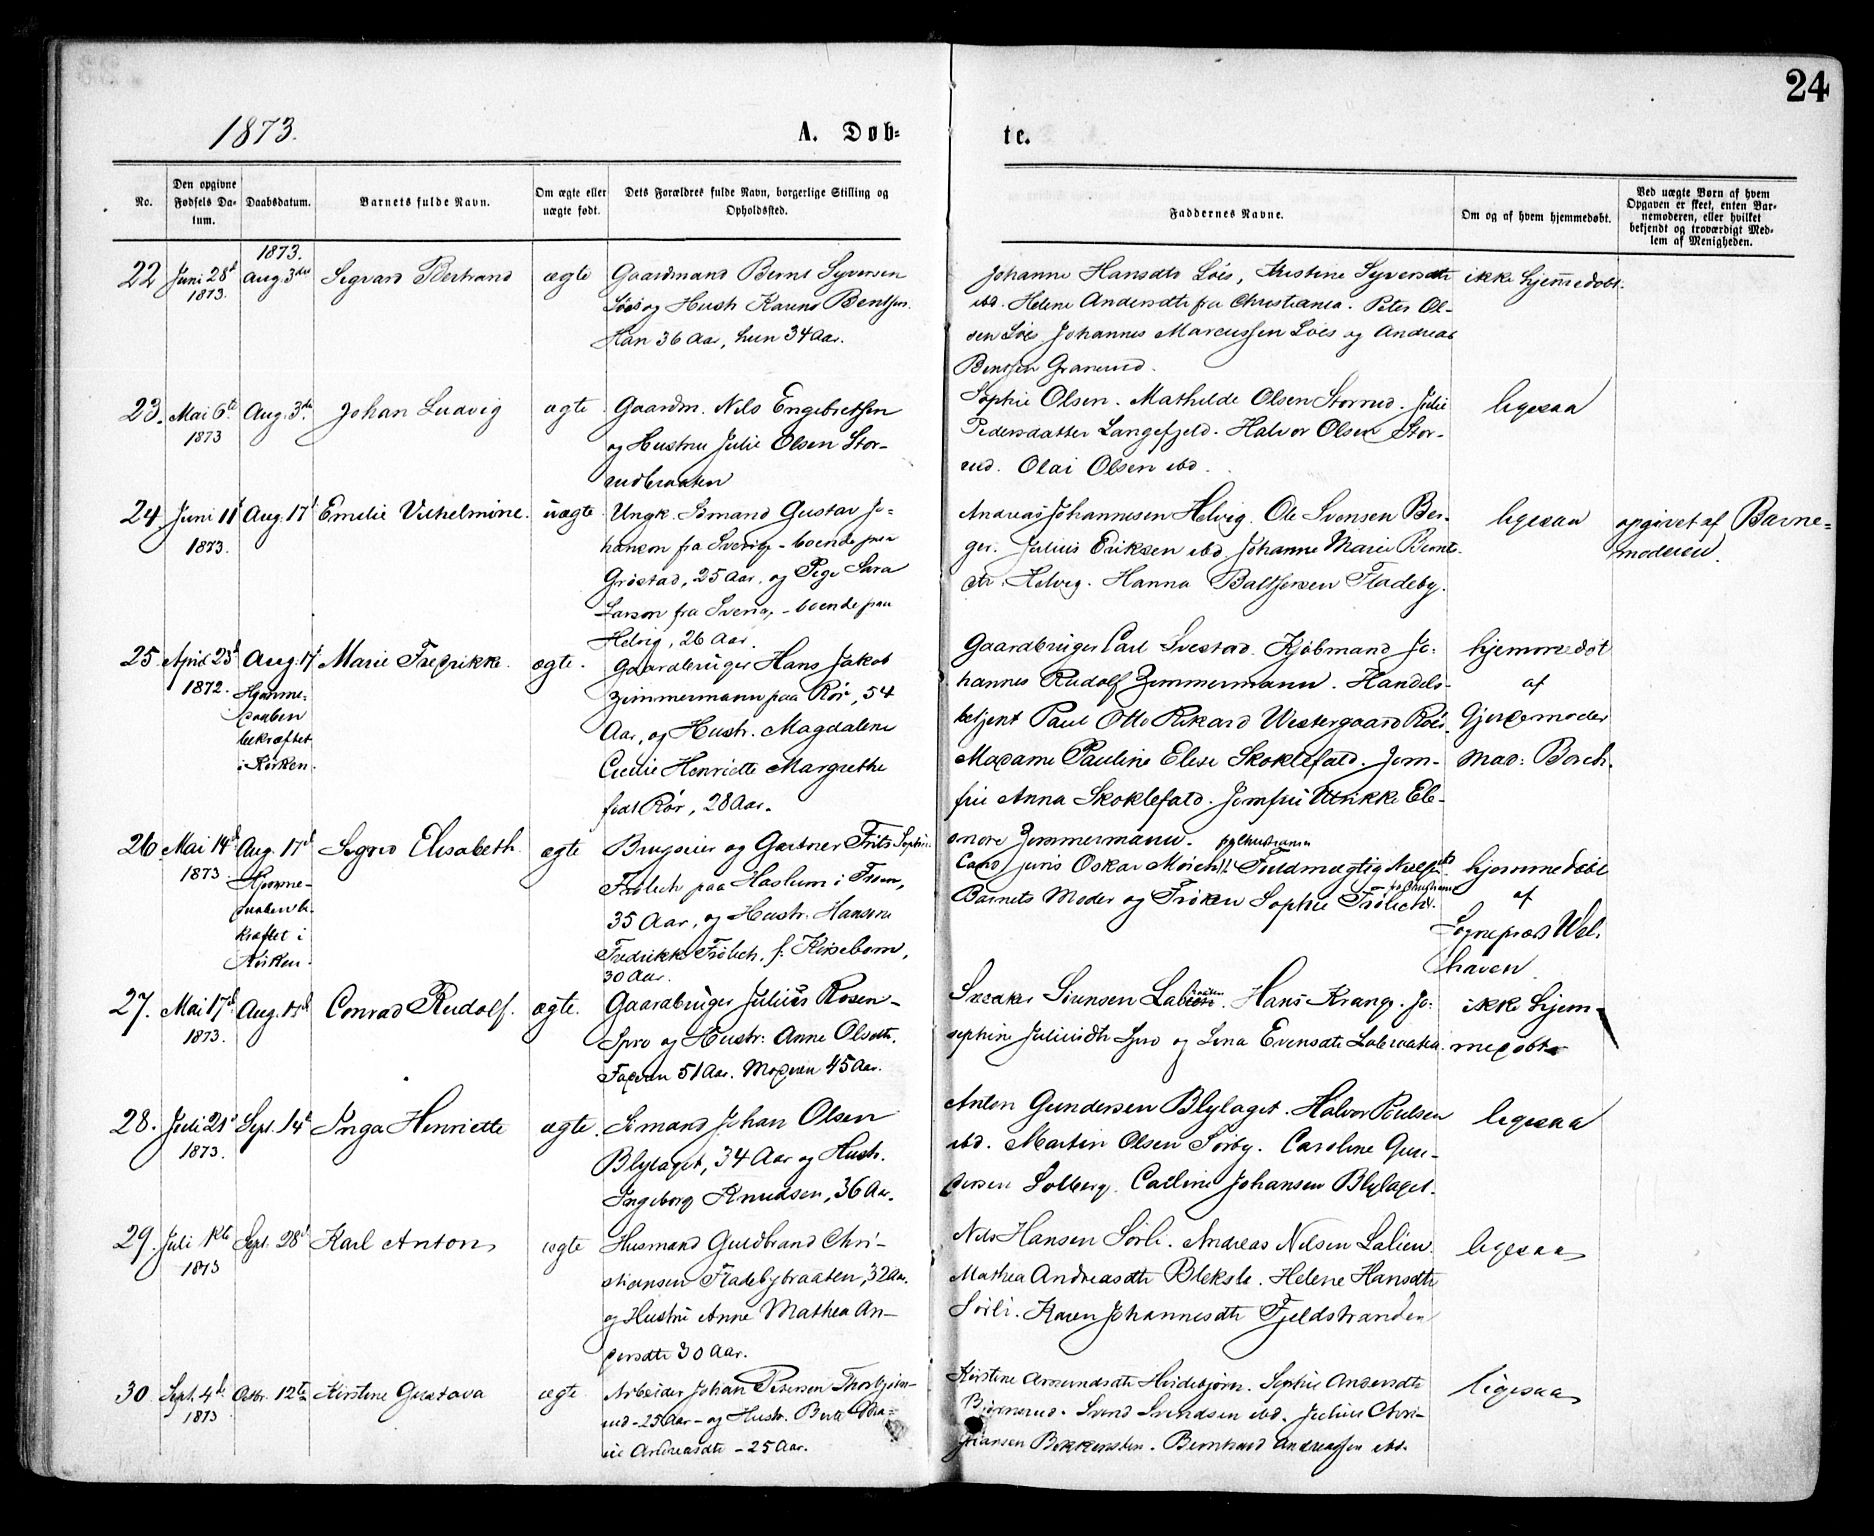 24
1873.
A. Døb-
te.
No.
Den opgivne
Fødsels Da-
tum.
Daabsdatum.
Barnets fulde Navn.
Om ægte eller
uægte født.
Dets Forældres fulde Navn, borgerlige Stilling og
Opholdssted.
Faddernes Navne.
Om og af hvem hjemmedøbt.
Ved uægte Børn af hvem
Opgaven er skeet, enten Bar-
nemoderen, eller hvilket
bekjendt og troværdigt Med-
lem af Menigheden.
1873.
22 Juni 28d Aug. 3die Sigvard Bertrand ægte Gaardmand Bernt Syversen
1873.
og Hustr. Karen Bentsen.
Han 36 Aar, hun 34 Aar.
Johanne Hansdtr Løes, Kristine Syversdtr
ibd. Helene Andersdtr fra Christiania. Peter Ol-
sen Løes Johannes Marcussen Løes og Andreas
Bentsen Granerud.
ikke hjemmedøbt.
23. Mai 6te Aug. 3die Johan Ludvig ægte Gaardm. Nils Engebretsen
1873
og Hustru Julie Olsen Stor-
rudbraaten
Sophie Olsen. Mathilde Olsen Storrud. Julie
Pedersdatter Langefjeld. Halvor Olsen Stor-
rud. Olai Olsen ibd.
ligesaa
24 Juni 11t Aug. 17d Emilie Vilhelmine. uægte. Ungk. Sømand Gustav Jo-
1873.
hanson fra Sverig, - boende paa
Grøstad, 25 Aar, og Pige Sara
Larson fra Sverig, - boende paa
Helvig, 26 Aar.
Andreas Johannesen Helvig. Ole Svensen Ber-
ger. Julius Eriksen ibd. Johanne Marie Bernt-
dtr. Helvig. Hanna Baltsersen Fladeby.
ligesaa
opgivet af Barne-
moderen.
25. April 23d Aug. 17d Marie Fredrikke. ægte. Gaardbruger Hans Jakob
1872.
Hjemme-
daaben
bekræftet
i Kirken.
Zimmermann paa Rør, 54
Aar, og Hustr. Magdalene
Cecilie Henriette Margrethe
født Rør, 28 Aar.
Gaardbruger Carl Svestad. Kjøbmand Jo-
hannes Rudolf Zimmermann. Handels-
betjent Paul Otto Rikard Westergaard Røer.
Madame Pauline Elise Skoklefald. Jom-
fru Anna Skoklefald. Jomfru Ulrikke Ele-
onore Zimmermann.
hjemmedøbt
af
Gjordemoder
Mad: Borch.
26 Mai 14d Aug. 17d Sigrid Elisabeth. ægte Brugseier og Gartner Frits
1873.
Hjemme-
daaben be-
kræftet i
Kirken.
Frølich paa Haslum i Froen,
35 Aar, og Hustr. Hansine
Fredrikke Frølich, f. Kiisebom,
30 Aar.
Cand. juris Oskar Mørch Fuldmægtig
Barnets Moder og Frøken Sophie Frølich.
hjemmedøbt
af
Sognepræst Wel-
haven.
27. Mai 17d Aug. 17d Conrad Rudolf. ægte. Gaardbruger Julius Rosen-
1873.
Spro og Hustr: Anne Olsdtr.
Faderen 51 Aar. Moderen 45 Aar.
Snedker Sørensen Hans Krange. Jo-
sephine Juliusdtr Spro og Lina Evensdtr Labraaten.
ikke hjem-
medøbt.
28. Juli 21d Sept. 14d Inga Henriette ægte. Sømand Johan Olsen
1873.
Blylaget, 34 Aar og Hustr.
Ingeborg Knudsen, 36 Aar.
Anton Gundersen Blylaget. Halvor Poulsen
ibd. Martin Olsen Sørby. Caroline Gun-
dersen Solberg. Carline Johansen Blylaget.
ligesaa
29. Juli 1ste Sept. 28d Karl Anton ægte Husmand Guldbrand Chri-
1873
stiansen Fladebybraaten, 32 Aar.
og Hustru Anne Mathea An-
dersdtr 30 Aar.
Nils Hansen Sørli. Andreas Nilsen Lalien.
Mathea Andreasdtr Bleksli. Helene Hansdtr
Sørli. Karen Johannesdtr Fjeldstranden
ligesaa
30 Sept. 4d Octbr. 12te Kirstine Gustava ægte. Arbeider Johan Petersen Thorbjørn-
1873
rud - 25 Aar - og Hustr. Berte Ma-
rie Andreasdtr - 25 Aar.
Kirstine Amundsdtr Hvidebjørn. Sophie Andersdtr
Bjørnerud. Svend Svendsen ibd. Julius Chri-
stiansen Bekkensten. Bernhard Andreassen ibd.
ligesaa